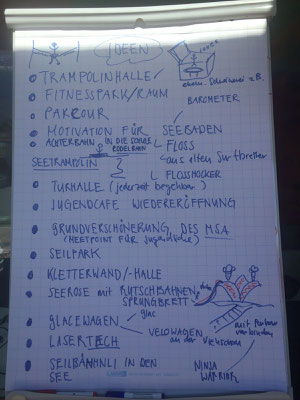 IDEEN
TRAMPOLINHALLE
FITNESSPARK/RAUM
PARCOUR
BAROMETER
MOTIVATION FÜR SEEBADEN
ACHTERBAHN IN DIE SORBE
RODELBAHN
FLOSS
aus alten Surfbretter
SEETRAMPOLIN
FLOSSHOCKER
TURHALLE (jederzeit begehbar)
JUGENDCAFE WIEDERERÖFFNUNG
GRUNDVERSCHÖNERUNG DES M.S.A.
(MEETPOINT FÜR Jugendliche)
SEILPARK
KLETTERWAND/-HALLE
SEEROSE mit RUTSCHBAHNEN
SPRUNGBRETT
GLACEWAGEN
glac
VELOWAGEN
an der
mit
verbinden
LASERTECH
SEILBÄHNLI IN DEN
SEE
NINJA
WARRIOR